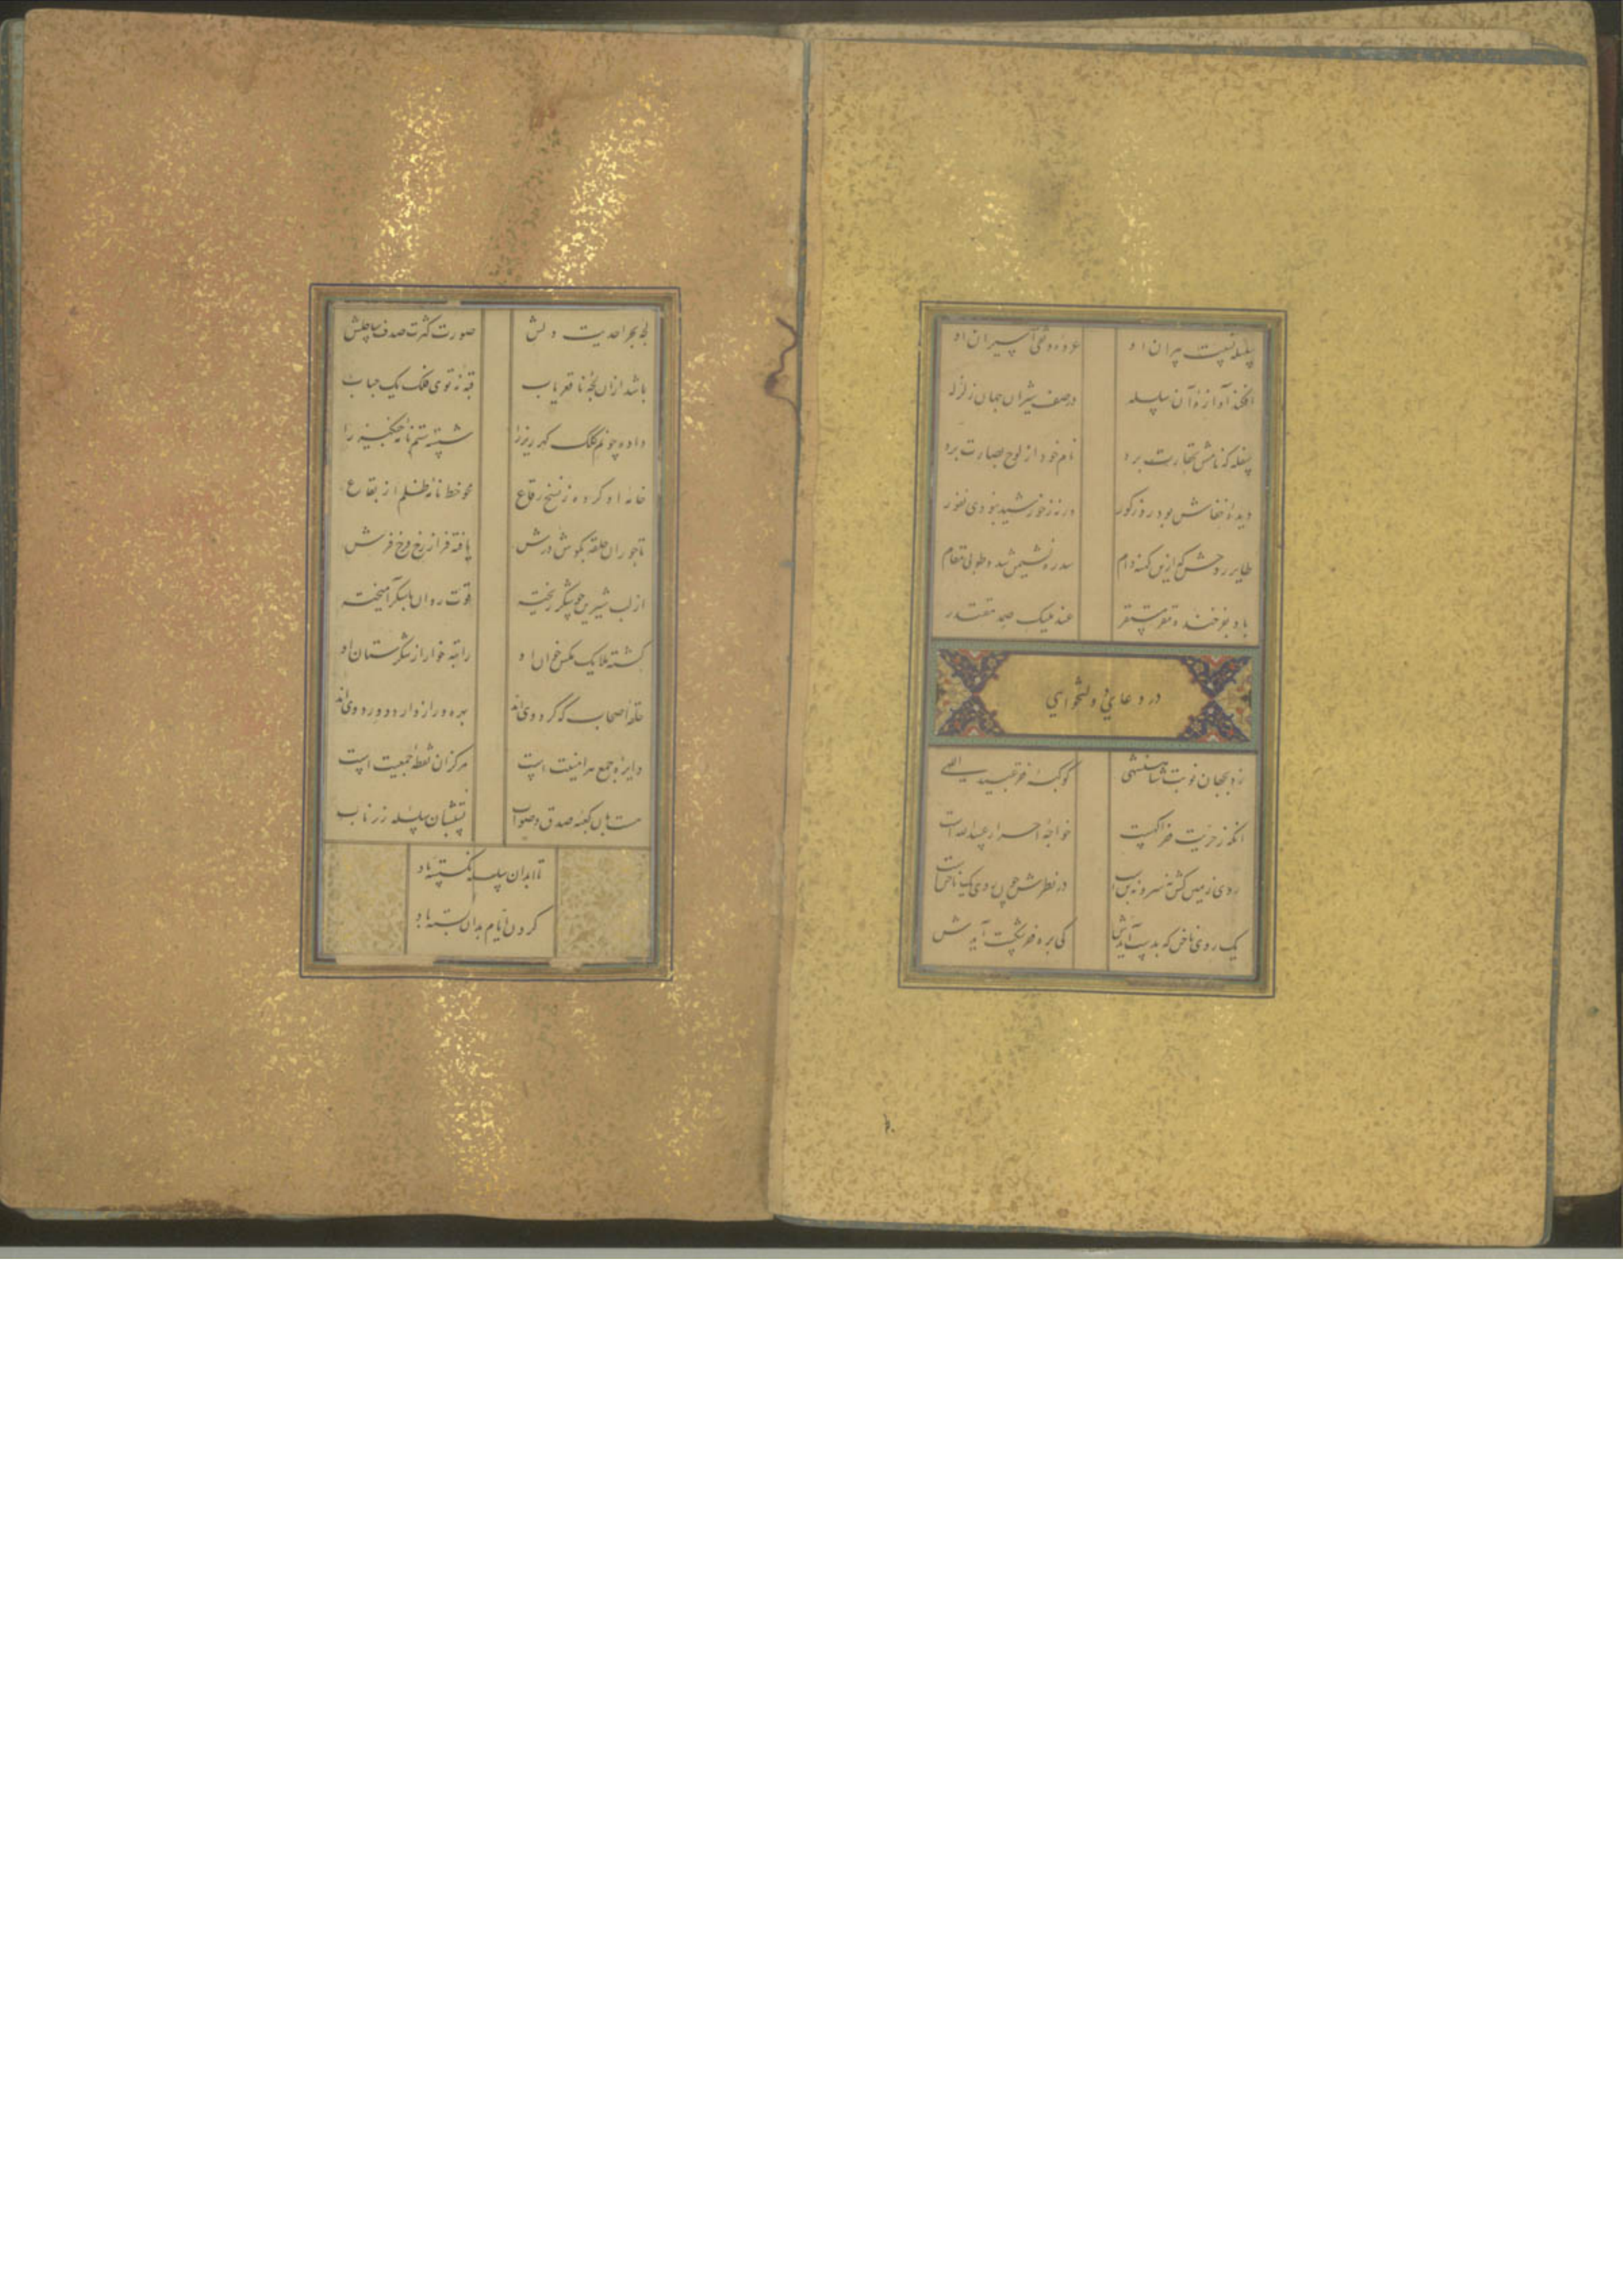 سلسله نسبت پیران او عروه وثقی اسیران او
افکند آوازه آن سلسله در صف شیران جهان زلزله
سفله که نامش بحقارت برد نام خود از لوح بصارت برد
دیده خفاش بود روز کور ورنه ز خورشید نبودی نفور
طایر روحش که ازین کهنه دام سدره نشیمن شد و طوبی مقام
باد بفرخنده مقر مستقر عند ملیک صمد مقتدر
در دعای دولتخواهی
زد بجهان نوبت شاهنشهی کوکبه فقر عبید اللهی
آنکه ز حریت فقر آگهست خواجه احرار عبیدالله است
روی زمین کش نه سر و نه بنست در نظرش چون روی یک ناخنست
یک روی ناخن که بدست آیدش کی بره فقر شکست آیدش
لجه بحر احدیت دلش صورت کثرت صدف ساحلش
باشد از آن لجه ناقعریاب قبه نه توی فلک یک حباب
داده چو نم کلک گهر ریز را شسته ستم نامه چنگیز را
خامه او کرده ز نسخ رقاع محو خط نامه ظلم از بقاع
تاجوران حلقه بگوش درش یافته فر از رخ فرخ فرش
از لب شیرین چو شکر ریخته قوت روان با شکر آمیخته
گشته ملایک مگس خوان او راتبه خوار از شکرستان او
حلقه اصحاب که گرد وی اند بهره ور از وارد و ورد وی اند
دایره جمع هر امنیت است مرکز آن نقطه جمعیت است
هست بآن کعبه صدق و صواب نسبتشان سلسله زر ناب
تا ابد آن سلسله نگسسته باد
گردن ایام بدان بسته باد